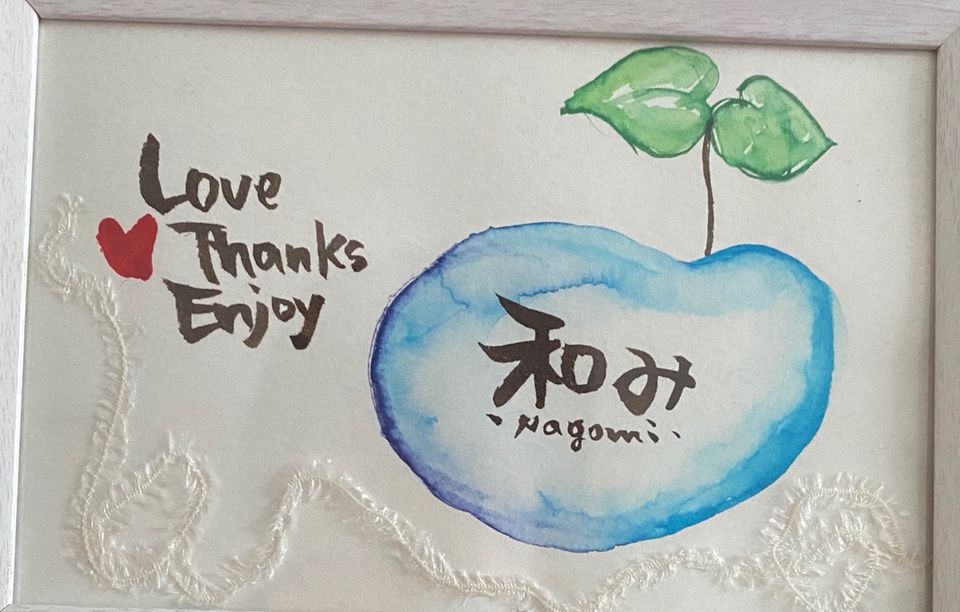 Love
Thanks
Enjoy
和み
・Nagomi・